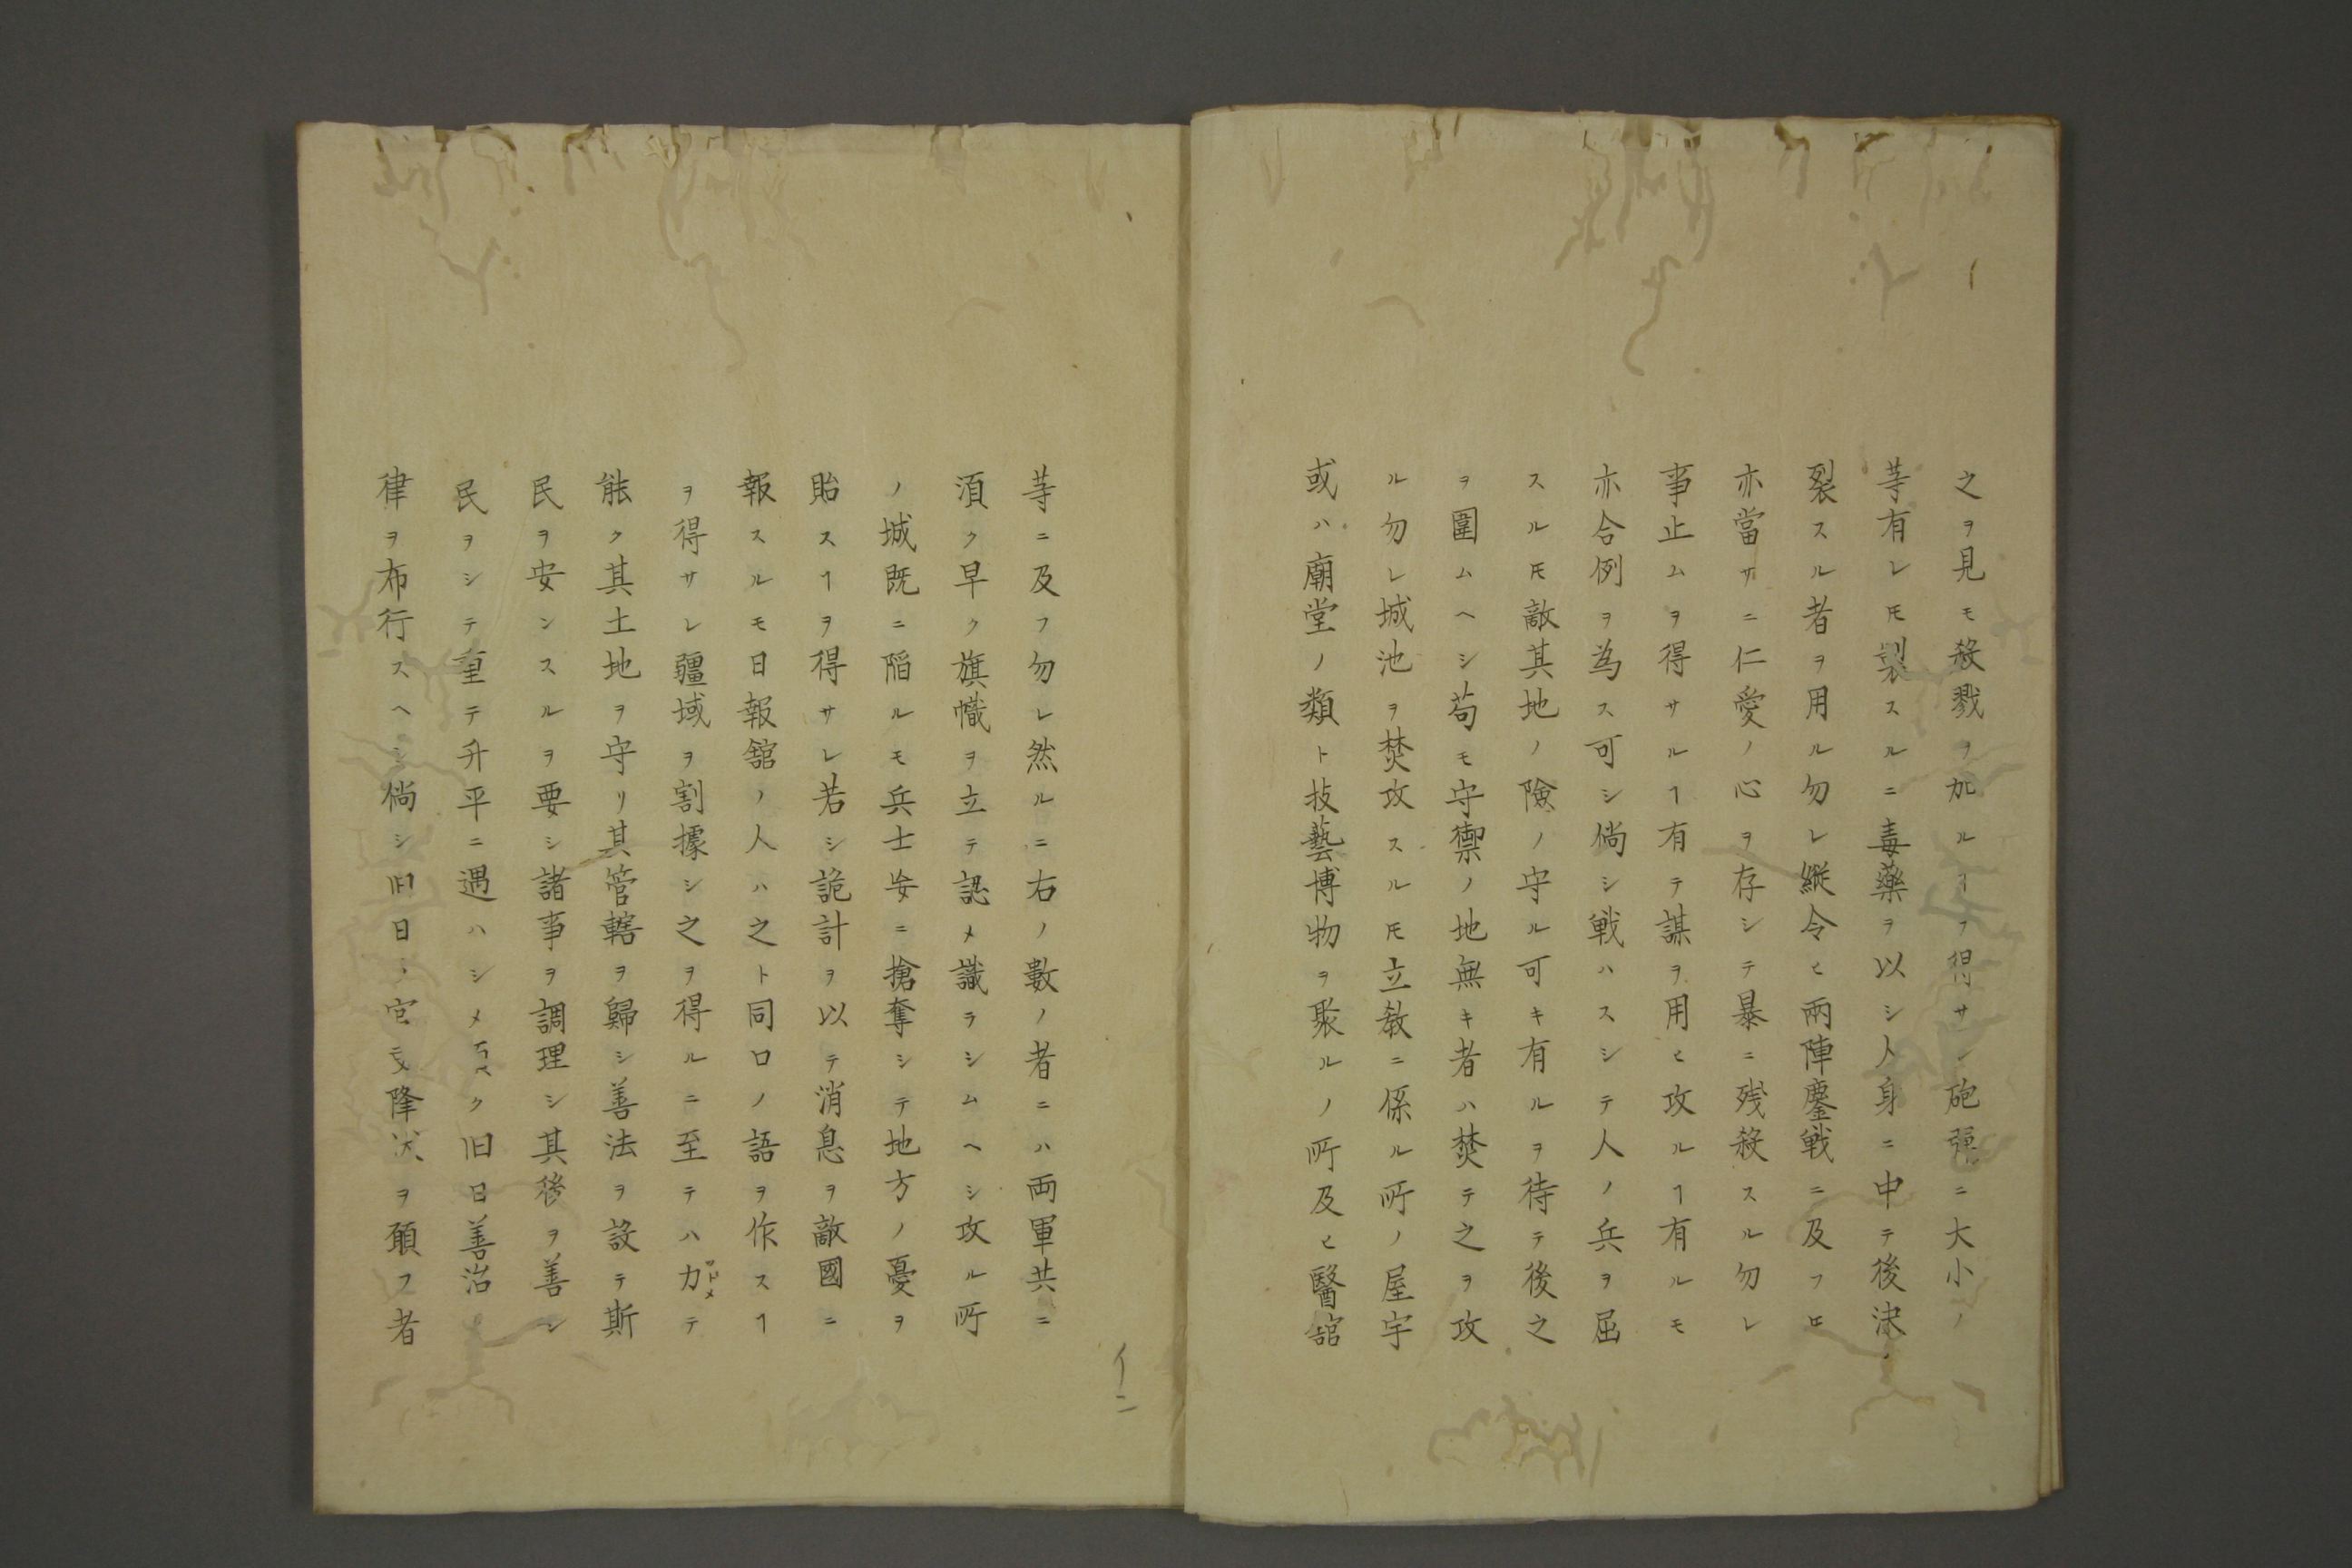 之ヲ見モ殺戮ヲ加ルヿヲ得サレ砲彈ニ大小ノ
等有レ𪜈製スルニ毒藥ヲ以シ人身ニ中テ後決
裂スル者ヲ用ル勿レ縦令ヒ兩陣鏖戦ニ及フ𪜈
亦當サニ仁愛ノ心ヲ存シテ暴ニ残殺スル勿レ
事止ムヲ得サルヿ有テ謀ヲ用ヒ攻ルヿ有ルモ
亦合例ヲ為ス可シ倘シ戦ハスシテ人ノ兵ヲ屈
スル𪜈敵其地ノ險ノ守ル可キ有ルヲ待テ後之
ヲ圍ムヘシ苟モ守禦ノ地無キ者ハ焚テ之ヲ攻
ル勿レ城池ヲ焚攻スル𪜈立教ニ係ル所ノ屋宇
或ハ廟堂ノ類ト技藝博物ヲ聚ルノ所及ヒ醫舘
等ニ及フ勿レ然ルニ右ノ數ノ者ニハ両軍共ニ
須ク早ク旗幟ヲ立テ認メ識ラシムヘシ攻ル所
ノ城既ニ陥ルモ兵士妄ニ搶奪シテ地方ノ憂ヲ
貽スヿヲ得サレ若シ詭計ヲ以テ消息ヲ敵國ニ
報スルモ日報舘ノ人ハ之ト同口ノ語ヲ作スヿ
ヲ得サレ疆域ヲ割據シ之ヲ得ルニ至テハ力テ
能ク其土地ヲ守リ其管轄ヲ歸シ善法ヲ設テ斯
民ヲ安ンスルヲ要シ諸事ヲ調理シ其後ヲ善シ
民ヲシテ重テ升平ニ遇ハシメク旧日善治
律ヲ布行スヘシ倘シ旧日官降ヲ願フ者